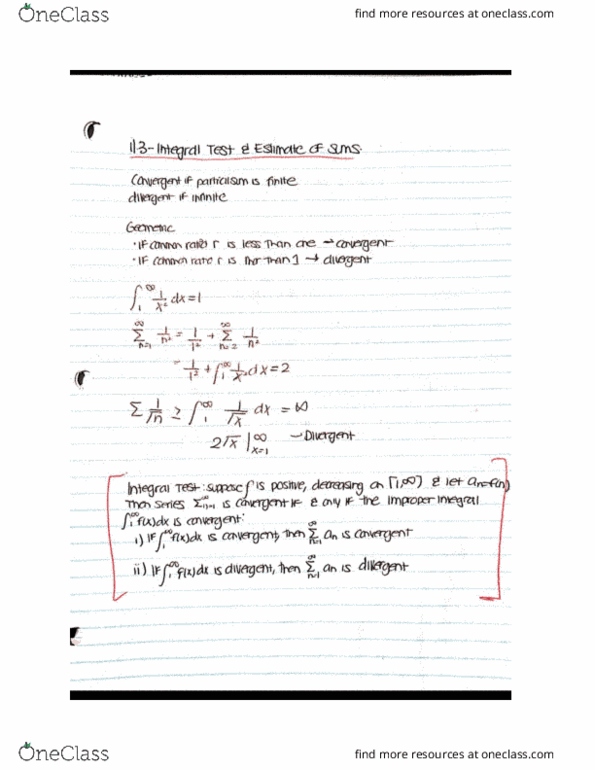 OneClass
find more resources at oneclass.com
11.3 - Integral Test & Estimate of sums
Convergent if partial sum is finite
divergent if infinite
Geometric
· IF common ratio r is less than one → convergent
· IF common ratio r is than 1 → divergent
∫₁^∞ 1/x² dx = 1
∑_{n=1}^∞ 1/n² = 1/1² + ∑_{n=2}^∞ 1/n²
= 1/1² + ∫₁^∞ 1/x² dx = 2
∑ 1/√n ≥ ∫₁^∞ 1/√x dx = ∞
2√x |_{x=1}^∞ → Divergent
Integral Test: suppose f is positive, decreasing on [1,∞) & let an=f(n)
Then series ∑_{n=1}^∞ is convergent if & only if the improper integral
∫₁^∞ f(x)dx is convergent:
i) IF ∫₁^∞ f(x)dx is convergent, then ∑_{n=1}^∞ an is convergent
ii) IF ∫₁^∞ f(x)dx is divergent, then ∑_{n=1}^∞ an is divergent
OneClass
find more resources at oneclass.com